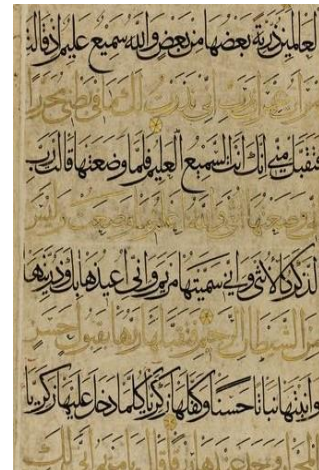 العالمين ذرية بعضها من بعض والله سميع عليم اذ قالت
امرأت عمران رب اني نذرت لك ما في بطني محررا
فتقبل مني انك انت السميع العليم فلما وضعتها قالت رب
اني وضعتها انثى والله اعلم بما وضعت وليس
الذكر كالانثى واني سميتها مريم واني اعيذها بك وذريتها
من الشيطان الرجيم فتقبلها ربها بقبول حسن
وانبتها نباتا حسنا وكفلها زكريا كلما دخل عليها زكريا
المحراب وجد عندها رزقا قال يا مريم انى لك